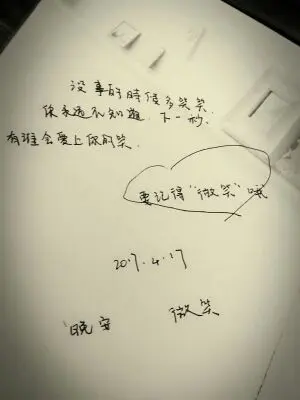 没事的時候多笑笑
你永遠不知道,下一秒,
有誰会愛上你的笑.
要記得"微笑"哦
2017.4.17
晚安
微笑